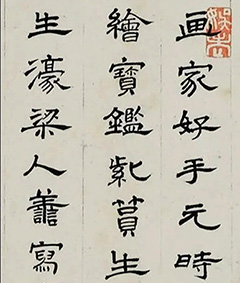 画家好手元時
繪寶鑑紫篔生
生濠梁人善寫